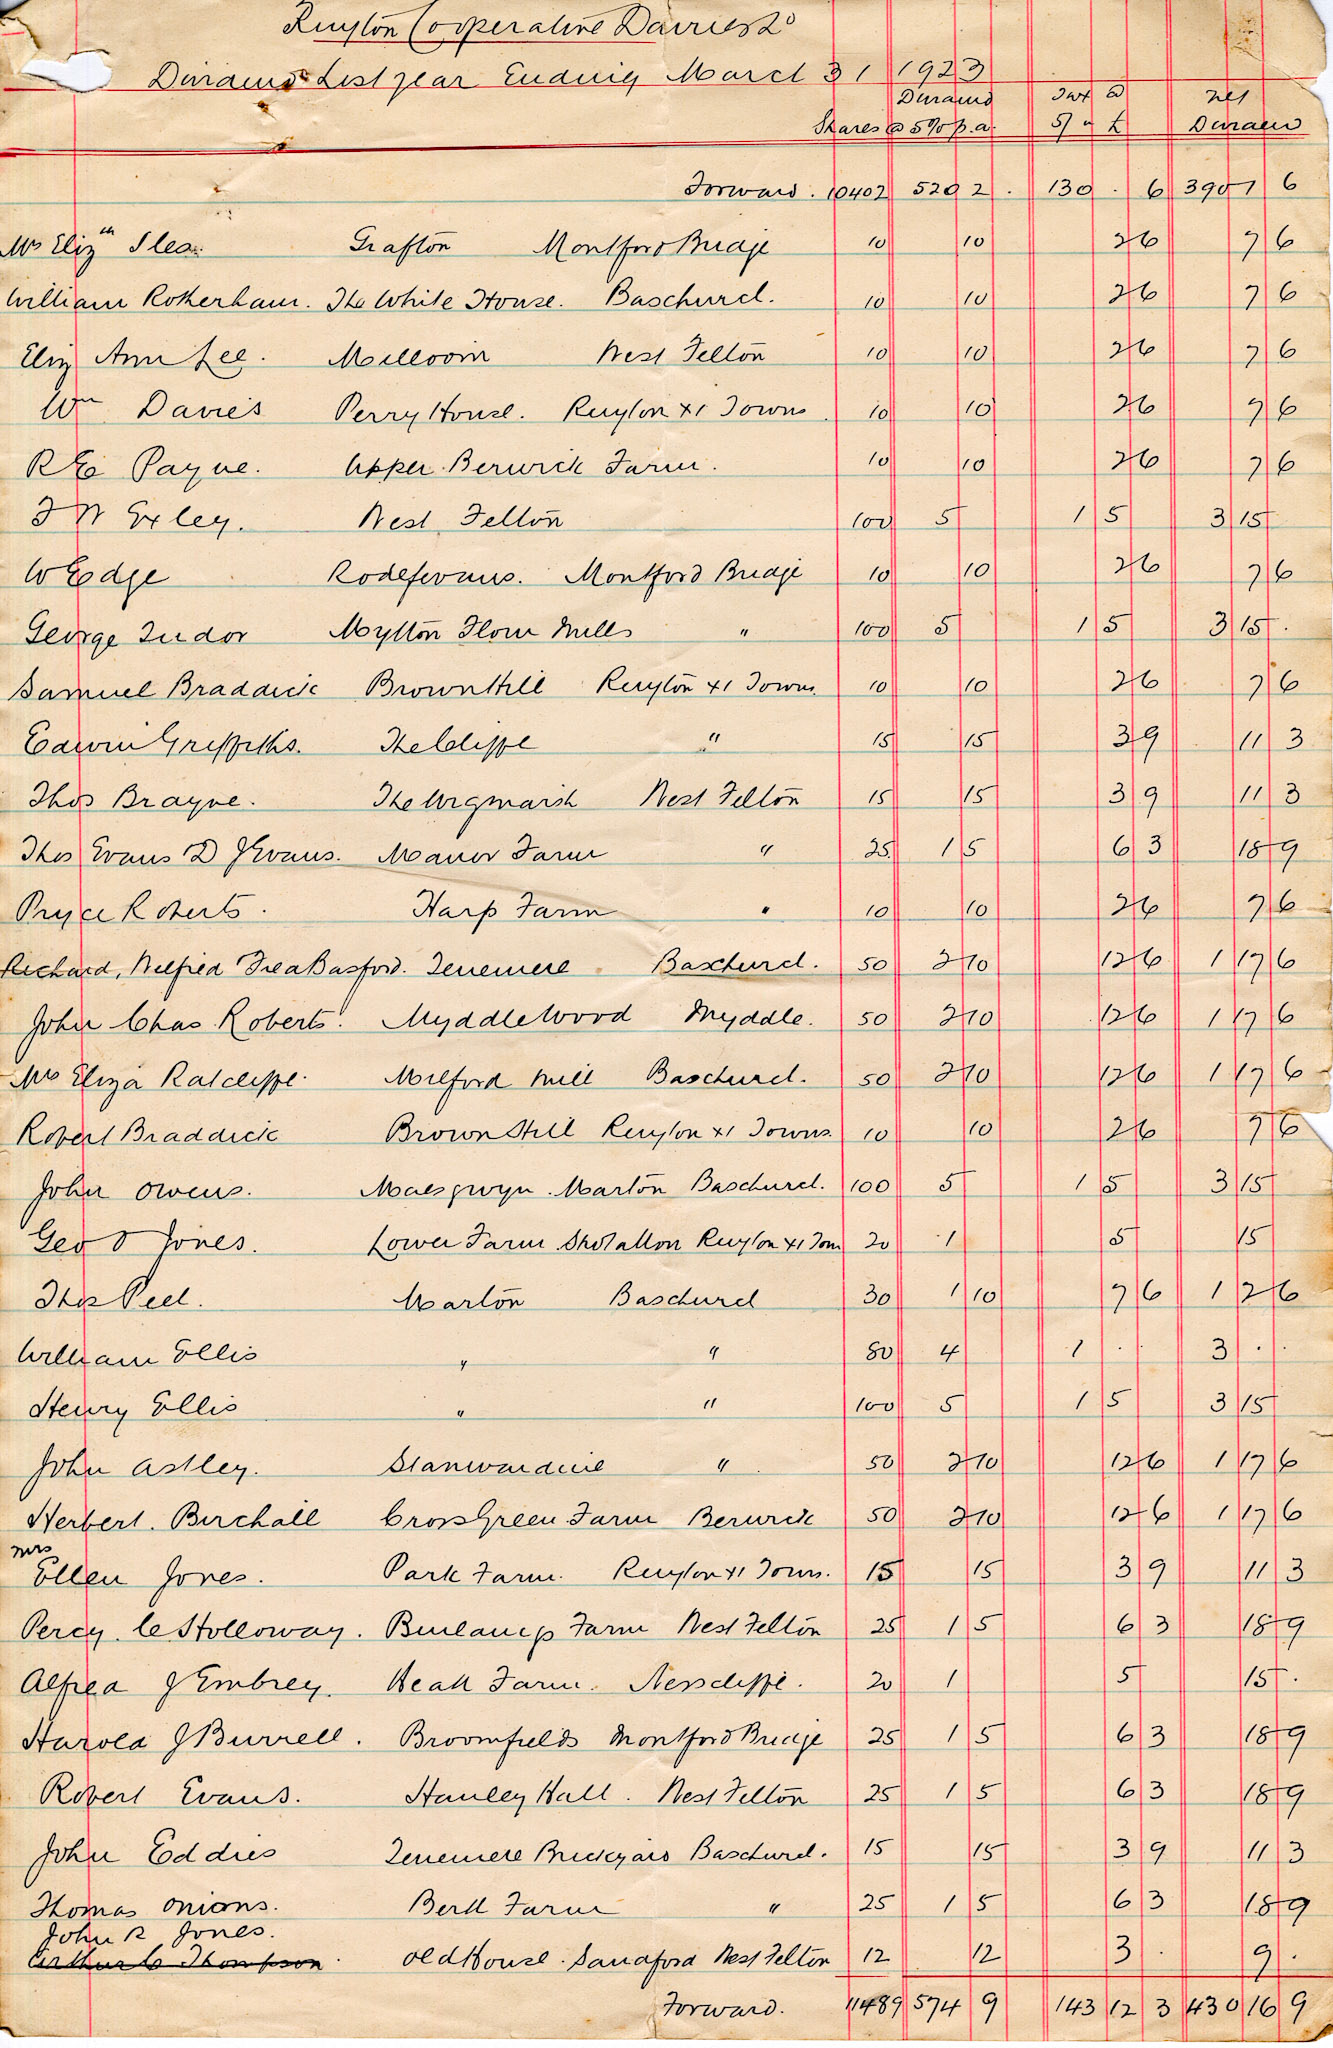 Ruyton Cooperative Dairies Ld
Dividend List year Ending March 31 1923
Dividend Tax @ Net
Shares @ 5% p.a. 5/ in £ Dividend
Forward. 10402 520 2 . 130 . 6 390 1 6
Mrs Elizth Slea Grafton Montford Bridge 10 10 2 6 7 6
William Rotherham. The White House. Baschurch. 10 10 2 6 7 6
Eliz Ann Lee. West Felton 10 10 2 6 7 6
Wm Davies Perry House. Ruyton x1 Towns 10 10 2 6 7 6
R E Payne. Upper Berwick Farm. 10 10 2 6 7 6
J W Exley. West Felton 100 5 1 5 3 15
W Edge Montford Bridge 10 10 2 6 7 6
George Tudor Mytton Flour Mills " 100 5 1 5 3 15 .
Samuel Braddick Brownhill Ruyton x1 Towns 10 10 2 6 7 6
Edwin Griffiths. The Cliffe " 15 15 3 9 11 3
Thos Brayne. The Wigmarsh West Felton 15 15 3 9 11 3
Thos Evans D J Evans. Manor Farm " 25 1 5 6 3 18 9
Pryce Roberts. Harp Farm " 10 10 2 6 7 6
Richard, Wilfred Basford. Tenemere Baschurch. 50 2 10 12 6 1 17 6
John Chas Roberts. Myddlewood Myddle. 50 2 10 12 6 1 17 6
Mrs Eliza Ratcliffe. Milford Mill Baschurch. 50 2 10 12 6 1 17 6
Robert Braddick Brownhill Ruyton x1 Towns 10 10 2 6 7 6
John Owens. Maesgwyn. Marton Baschurch. 100 5 1 5 3 15
Geo O Jones. Lower Farm Shotatton Ruyton x1 Tow 20 1 5 15
Thos Peel. Marton Baschurch 30 1 10 7 6 1 2 6
William Ellis " " 80 4 1 . . 3 . .
Henry Ellis " " 100 5 1 5 3 15
John Astley. Stanwardine " 50 2 10 12 6 1 17 6
Herbert. Birchall Cross Green Farm Berwick 50 2 10 12 6 1 17 6
Mrs
Ellen Jones. Park Farm. Ruyton x1 Towns. 15 15 3 9 11 3
Percy. C Holloway. Farm West Felton 25 1 5 6 3 18 9
Alfred J Embrey. Heath Farm. Nesscliffe. 20 1 5 15 .
Harold J Burrell. Broomfields Montford Bridge 25 1 5 6 3 18 9
Robert Evans. Stanley Hall. West Felton 25 1 5 6 3 18 9
John Eddies Tenemere Brickyard Baschurch. 15 15 3 9 11 3
Thomas Onions. Berth Farm " 25 1 5 6 3 18 9
John R Jones.
Arthur C Thompson. Old House. Sandford West Felton 12 12 3 . 9 .
Forward. 11489 574 9 143 12 3 430 16 9